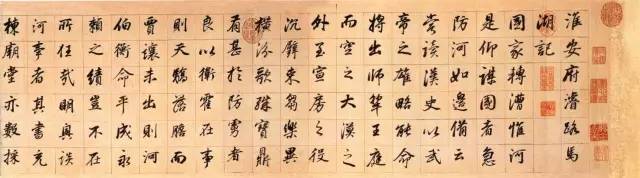 淮安府濬路馬
湖記
國家轉漕惟河
是仰謀國者急
防河如邊備云
嘗讀漢史以武
帝之雄略能命
將出師犂王庭
而空之大漠之
外至宣房之役
沉璧束芻樂異
橫汾歌殊寶鼎
甚於防者
良以衛霍在事
則天驕落膽而
賈讓未出則河
伯衡命平成永
賴之績豈不在
所任哉明興談
河事者其書充
棟廟堂亦數採